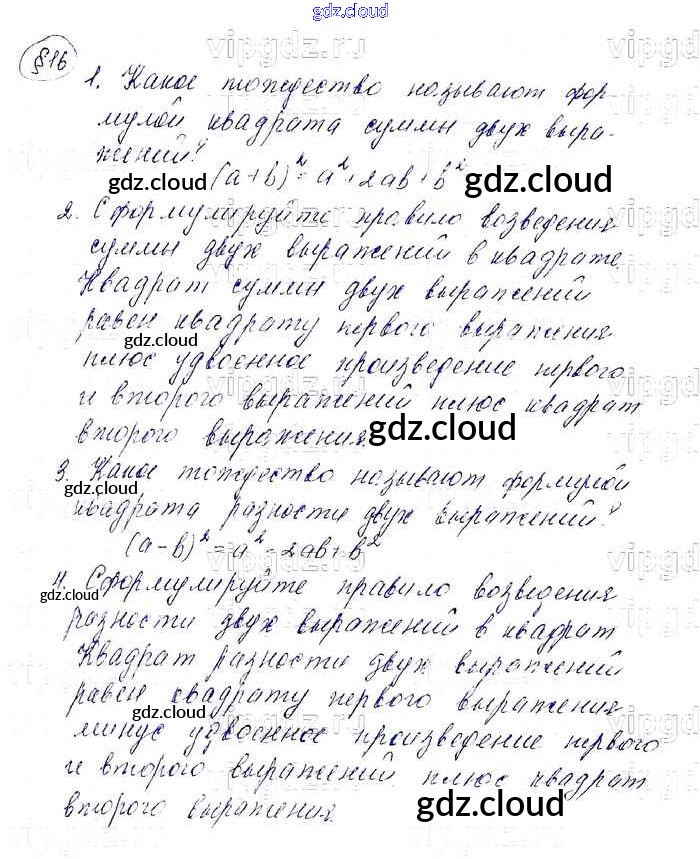 gdz.cloud
§16
1. Какое тождество называют фор-
мулой квадрата суммы двух выра-
жений?
(a+b)²=a²+2ab+b²
2. Сформулируйте правило возведения
суммы двух выражений в квадрате.
Квадрат суммы двух выражений
равен квадрату первого выражения
плюс удвоенное произведение первого
и второго выражений плюс квадрат
второго выражения.
3. Какое тождество называют формулой
квадрата разности двух выражений?
(a-b)²=a²-2ab+b²
4. Сформулируйте правило возведения
разности двух выражений в квадрат
Квадрат разности двух выражений
равен квадрату первого выражения
минус удвоенное произведение первого
и второго выражений плюс квадрат
второго выражения.
vipgdz.ru
gdz.cloud
gdz.cloud
gdz.cloud
gdz.cloud
gdz.cloud
gdz.cloud
gdz.cloud
gdz.cloud